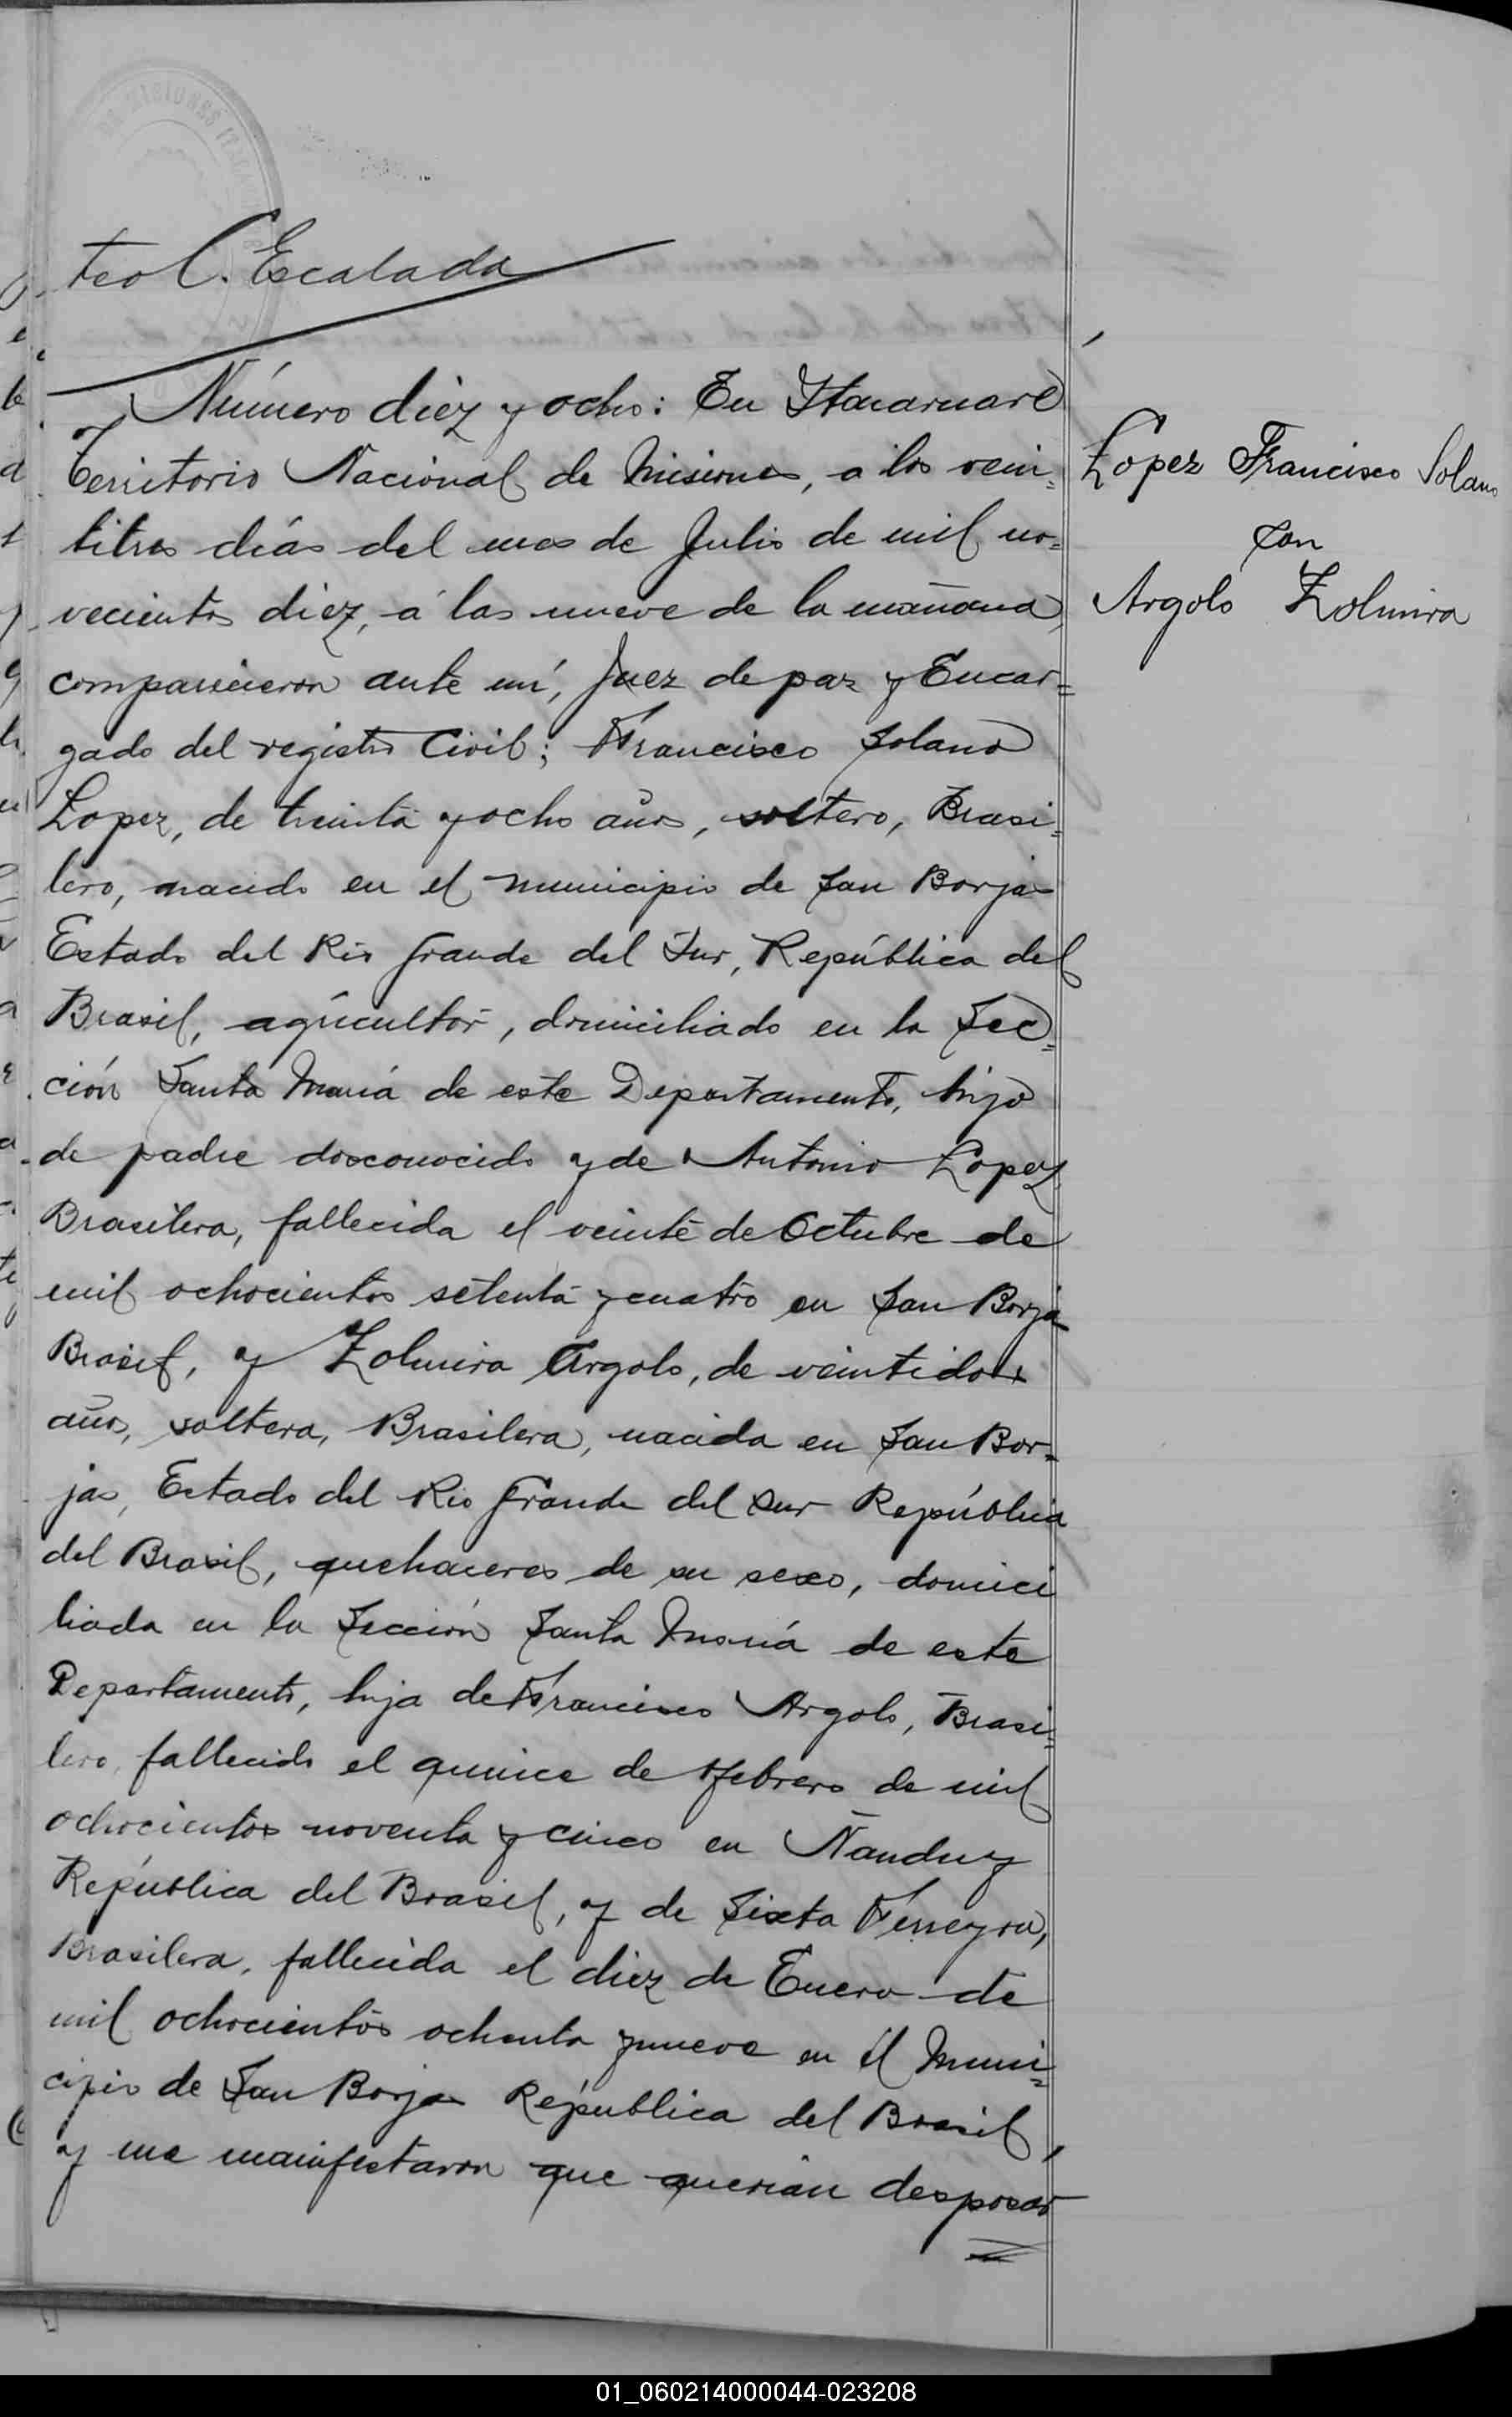 teo C. Escalada
Número diez y ocho: En Itacaruaré
Territorio Nacional de Misiones, a los vein=
titres días del mes de Julio de mil no=
vecientos diez, á las nueve de la mañana,
comparecieron ante mí, Juez de paz y Encar=
gado del registro Civil; Francisco Solano
Lopez, de treinta y ocho años, soltero, Brasi=
lero, nacido en el municipio de San Borja
Estado del Rio Grande del Sur, República del
Brasil, agricultor, domiciliado en la Sec=
ción Santa María de este Departamento, hijo
de padre desconocido y de Antonia Lopez
Brasilera, fallecida el veinte de Octubre de
mil ochocientos setenta y cuatro en San Borja
Brasil, y Zolmira Argolo, de veintidos
años, soltera, Brasilera, nacida en San Bor=
ja, Estado del Rio Grande del Sur República
del Brasil, quehaceres de su sexo, domici
liada en la Sección Santa María de este
Departamento, hija de Francisco Argolo, Brasi=
lero, fallecido el quince de Febrero de mil
ochocientos noventa y cinco en Ñanduy
República del Brasil, y de Sixta Ferreyra,
Brasilera, fallecida el diez de Enero de
mil ochocientos ochenta y nueve en el Muni=
cipio de San Borja República del Brasil,
y me manifestaron que querian desposar
Lopez Francisco Solano
con
Argolo Zolmira
01_060214000044-023208